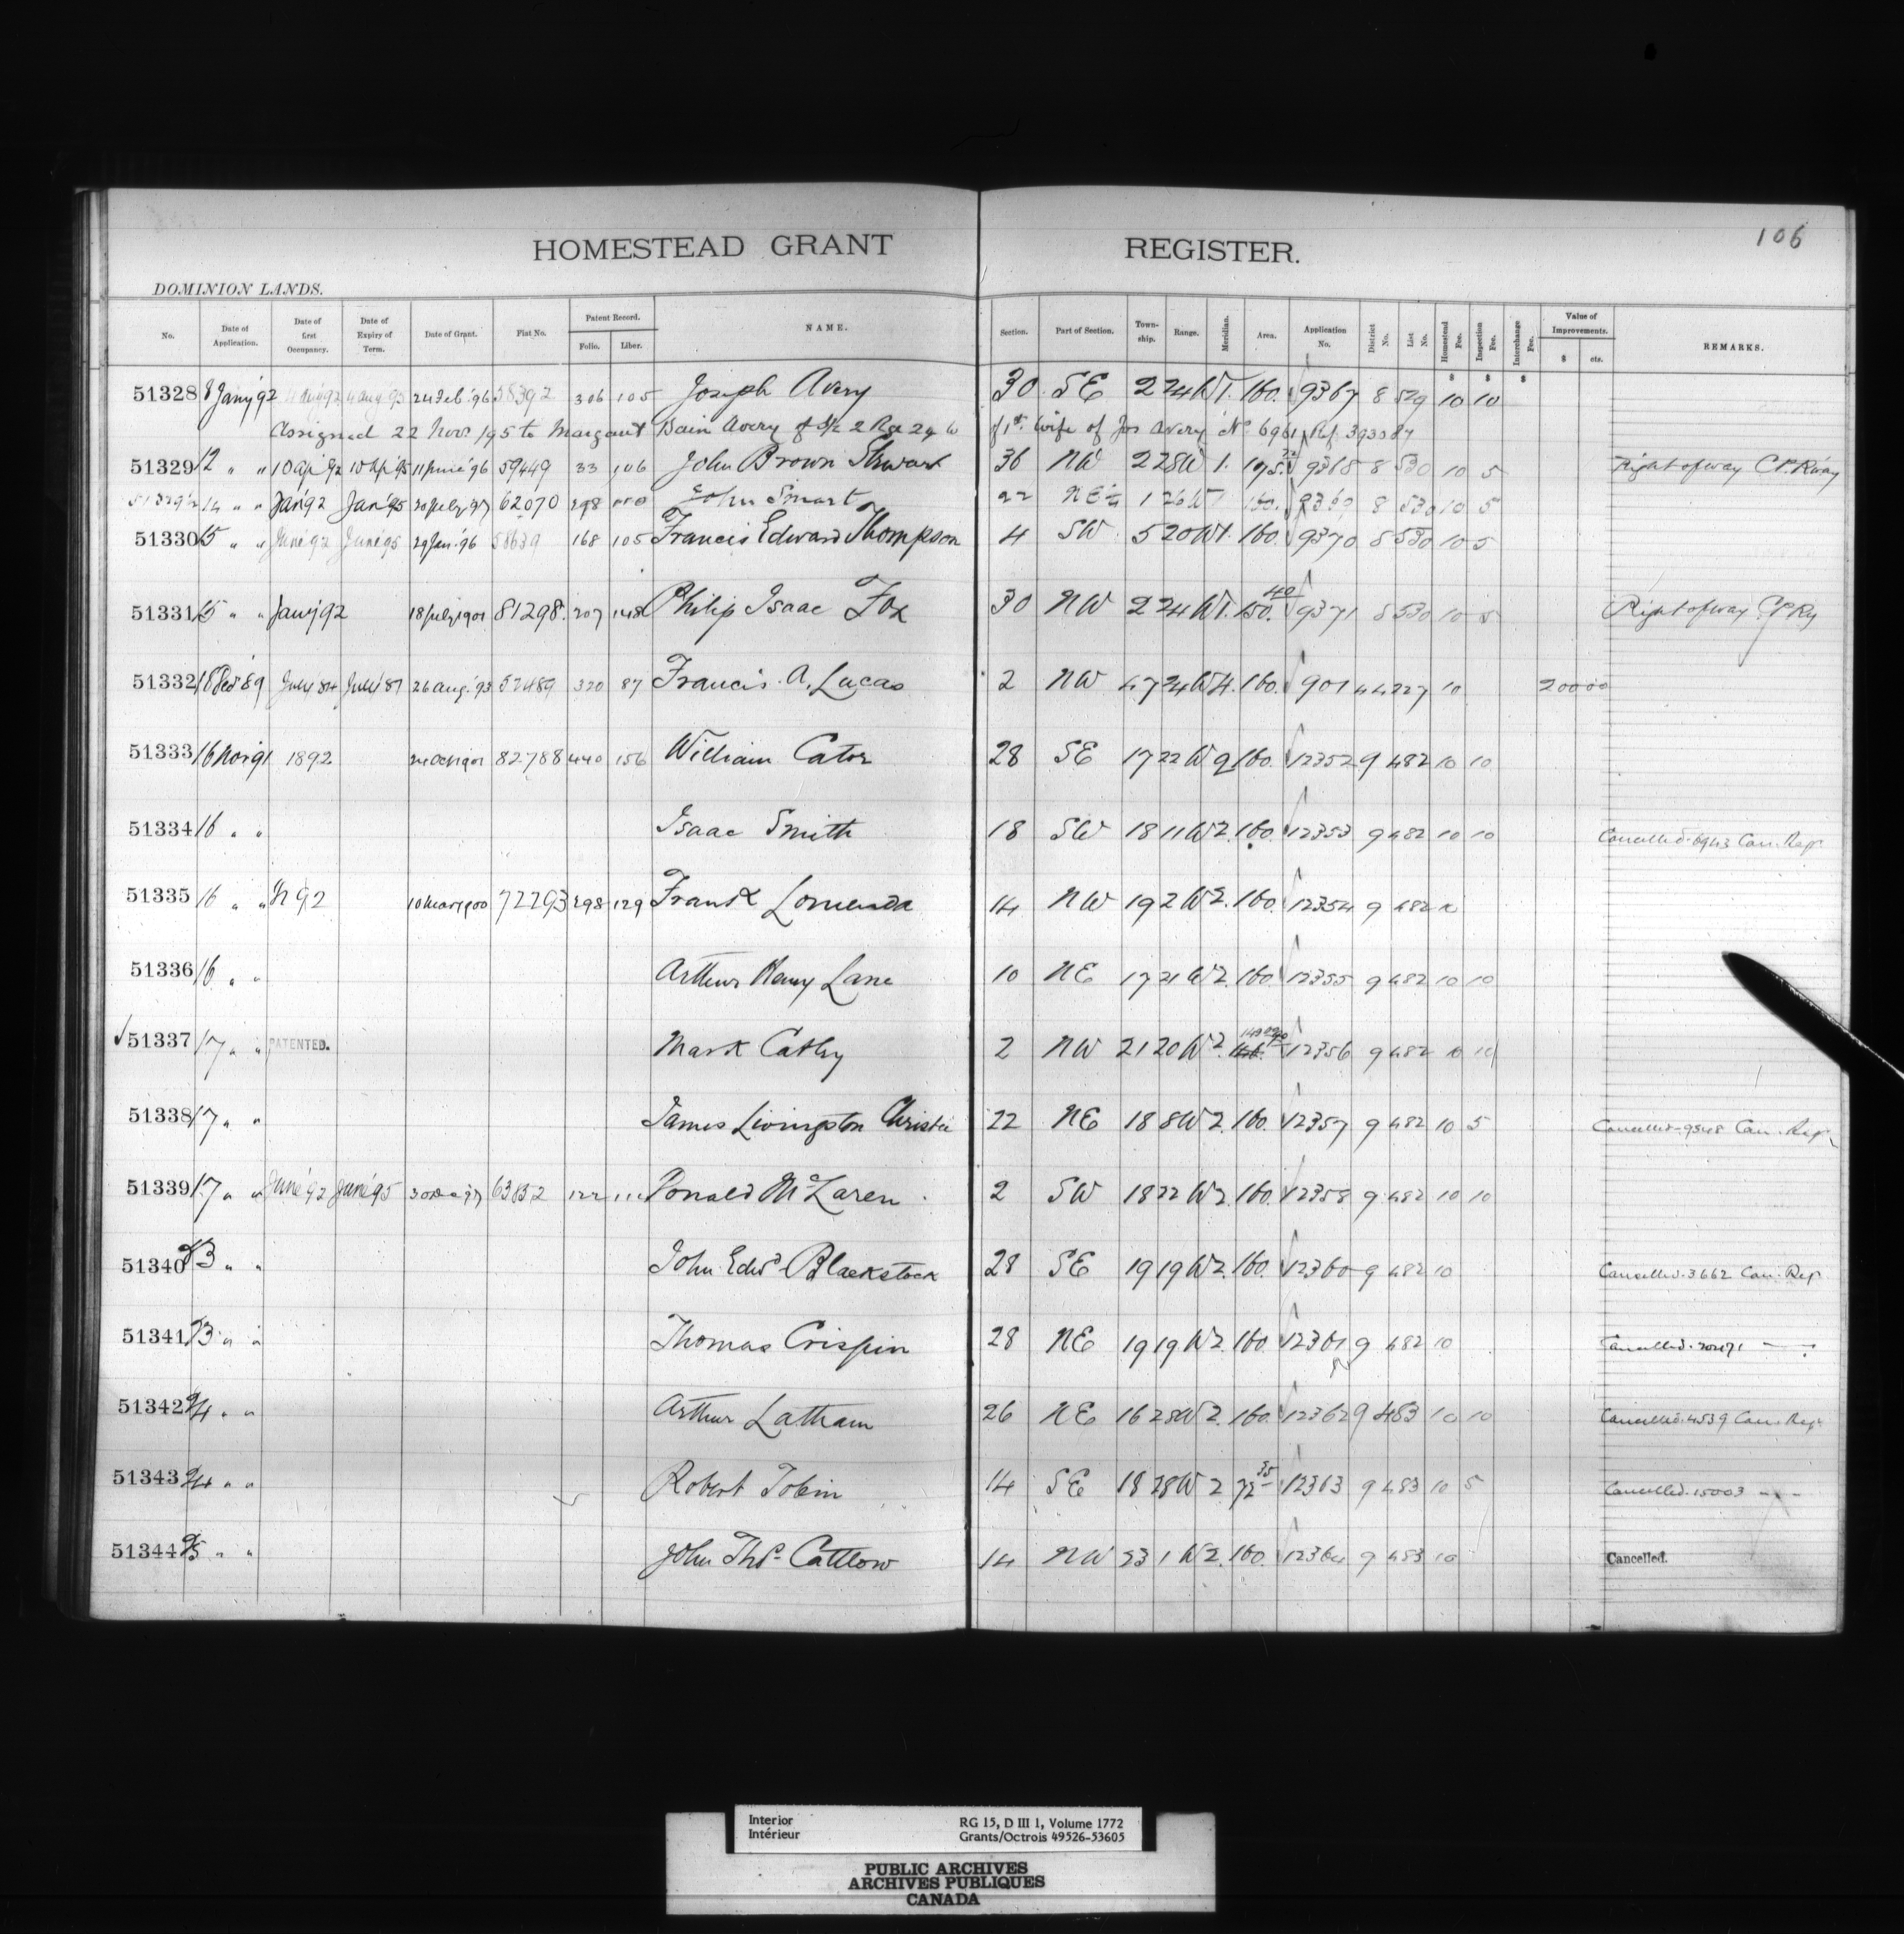 106
HOMESTEAD GRANT REGISTER.
DOMINION LANDS.
No. Date of Application. Date of first Occupancy. Date of Expiry of Term. Date of Grant. Fiat No. Patent Record. Folio. Liber. NAME. Section. Part of Section. Township. Range. Meridian. Area. Application No. District No. List No. Homestead Fee. Inspection Fee. Interchange Fee. Value of Improvements. $ cts. REMARKS.
$ $ $
51328 8 Jany 92 24 Feb. '96 58392 306 105 Joseph Avery 30 SE 2 24 W 1. 160. 9367 8 529 10 10
Assigned 22 Novr 195 to Margaret Bain Avery of S½ 2 Rge 24 W of 1st. wife of Jos Avery No 6961 Ref. 393084
51329 12 " " 10 Apl 92 10 Apl 95 11 June '96 59449 33 106 John Brown Stewart 36 NW 2 28 W 1. 9368 8 530 10 5 Right of way C.P. R'way
51329½ 14 " " Jan '92 Jan '95 20 July 97 62070 298 John Smart 22 NE¼ 1 26 W 1 160. 9369 8 530 10 5
51330 15 " " June 92 June 95 29 Jan. '96 58639 168 105 Francis Edward Thompson 4 SW 5 20 W 1. 160. 9370 8 530 10 5
51331 15 " " Jany 92 18 July 1901 81298. 207 148 Philip Isaac Fox 30 NW 2 24 W 1. 150.40 9371 8 530 10 5 Right of way C.P. Ry
51332 18 Dec '89 July '84 July '87 26 Aug. '93 52489 320 87 Francis. A. Lucas 2 NW 47 24 W 4. 160. 901 44 227 10 200 00
51333 16 Nov 91 1892 24 Oct 1901 82788 440 156 William Cator 28 SE 17 22 W 2 160. 12352 9 482 10 10
51334 16 " " Isaac Smith 18 SW 18 11 W 2. 160. 12353 9 482 10 10 Cancelled. 6943 Can. Regr.
51335 16 " " 92 10 Mar 1900 72293 298 129 Frank Lomenda 14 NW 19 2 W 2. 160. 12354 9 482 10
51336 16 " " Arthur Henry Lane 10 NE 17 21 W 2. 160. 12355 9 482 10 10
51337 17 " " PATENTED. Mark Cathy 2 NW 21 20 W 2. 12356 9 482 10 10
51338 17 " " James Livingston Christie 22 NE 18 8 W 2. 160. 12357 9 482 10 5 Cancelled. 9548 Can. Regr.
51339 17 " " June '92 June '95 30 Dec 97 63832 122 111 Donald McLaren 2 SW 18 22 W 2. 160. 12358 9 482 10 10
51340 23 " " John Edwd Blackstock 28 SE 19 19 W 2. 160. 12360 9 482 10 Cancelled. 3662 Can. Regr.
51341 23 " " Thomas Crispin 28 NE 19 19 W 2. 160. 12361 9 482 10 Cancelled. 20471 — "
51342 24 " " Arthur Latham 26 NE 16 28 W 2. 160. 12362 9 483 10 10 Cancelled. 4539 Can. Regr.
51343 24 " " Robert Tobin 14 SE 18 28 W 2 72.35 12363 9 483 10 5 Cancelled. 15003 — " —
51344 25 " " John Thos. Cattlow 14 NW 23 1 W 2. 160. 12364 9 483 10 Cancelled.
Interior RG 15, D III 1, Volume 1772
Intérieur Grants/Octrois 49526-53605
PUBLIC ARCHIVES
ARCHIVES PUBLIQUES
CANADA